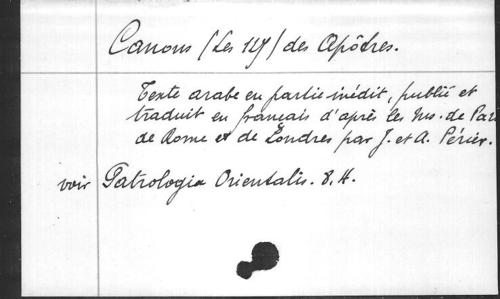 Canons (Les 127) des Apôtres.
Texte arabe en partie inédit, publié et
traduit en français d'après les ms. de Par
de Rome et de Londres par J. et A. Périer.
voir Patrologia Orientalis. 8, 4.